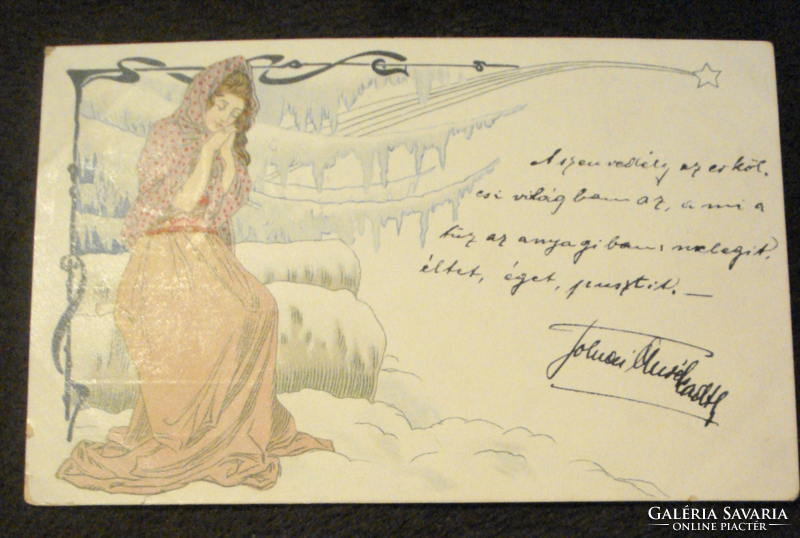 A szenvedély az erköl.
csi világban az, a mi a
tüz az anyagiban: melegit,
éltet, éget, pusztit. —
Tolnai
GALÉRIA SAVARIA
ONLINE PIACTÉR